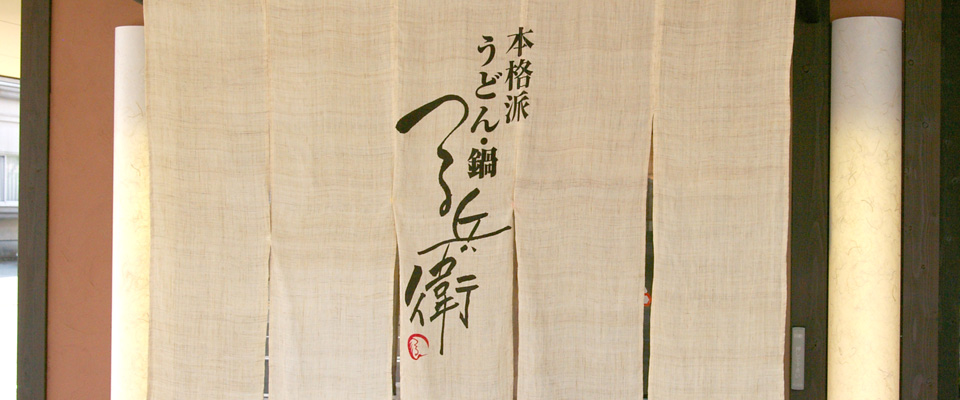 本格派
うどん・鍋
つる兵衛